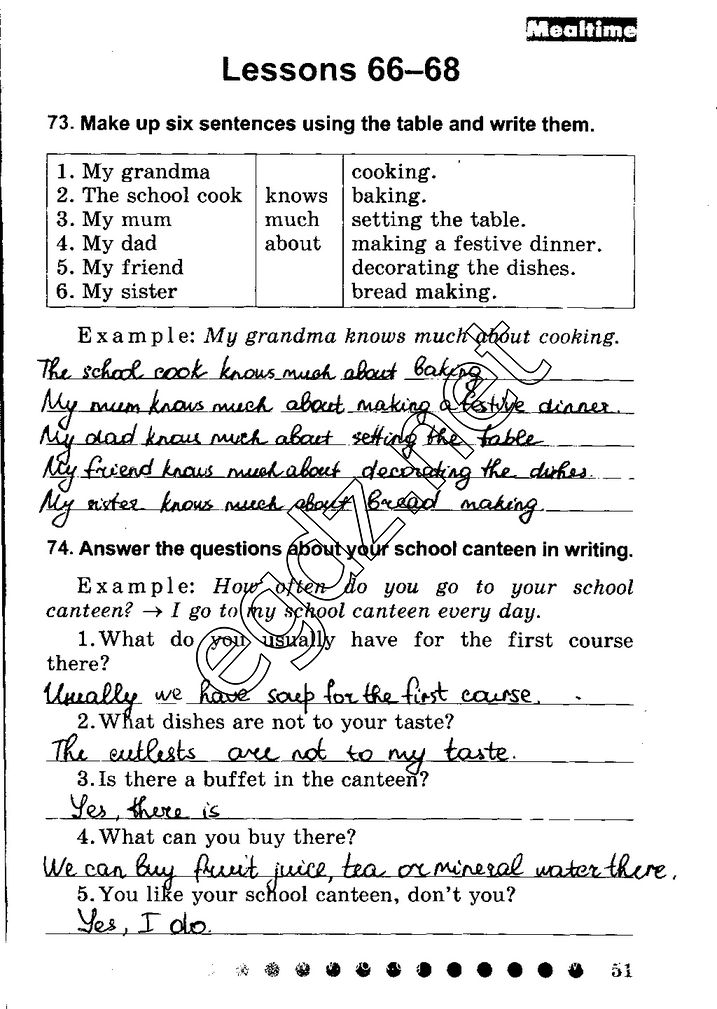 Mealtime
Lessons 66–68
73. Make up six sentences using the table and write them.
1. My grandma cooking.
2. The school cook knows baking.
3. My mum much setting the table.
4. My dad about making a festive dinner.
5. My friend decorating the dishes.
6. My sister bread making.
Example: My grandma knows much about cooking.
The school cook knows much about baking
My mum knows much about making a festive dinner.
My dad knows much about setting the table
My friend knows much about decorating the dishes.
My sister knows much about bread making.
74. Answer the questions about your school canteen in writing.
Example: How often do you go to your school
canteen? → I go to my school canteen every day.
1. What do you usually have for the first course
there?
Usually we have soup for the first course.
2. What dishes are not to your taste?
The cutlests are not to my taste.
3. Is there a buffet in the canteen?
Yes, there is
4. What can you buy there?
We can buy fruit juice, tea or mineral water there.
5. You like your school canteen, don't you?
Yes, I do.
51
egdz.net